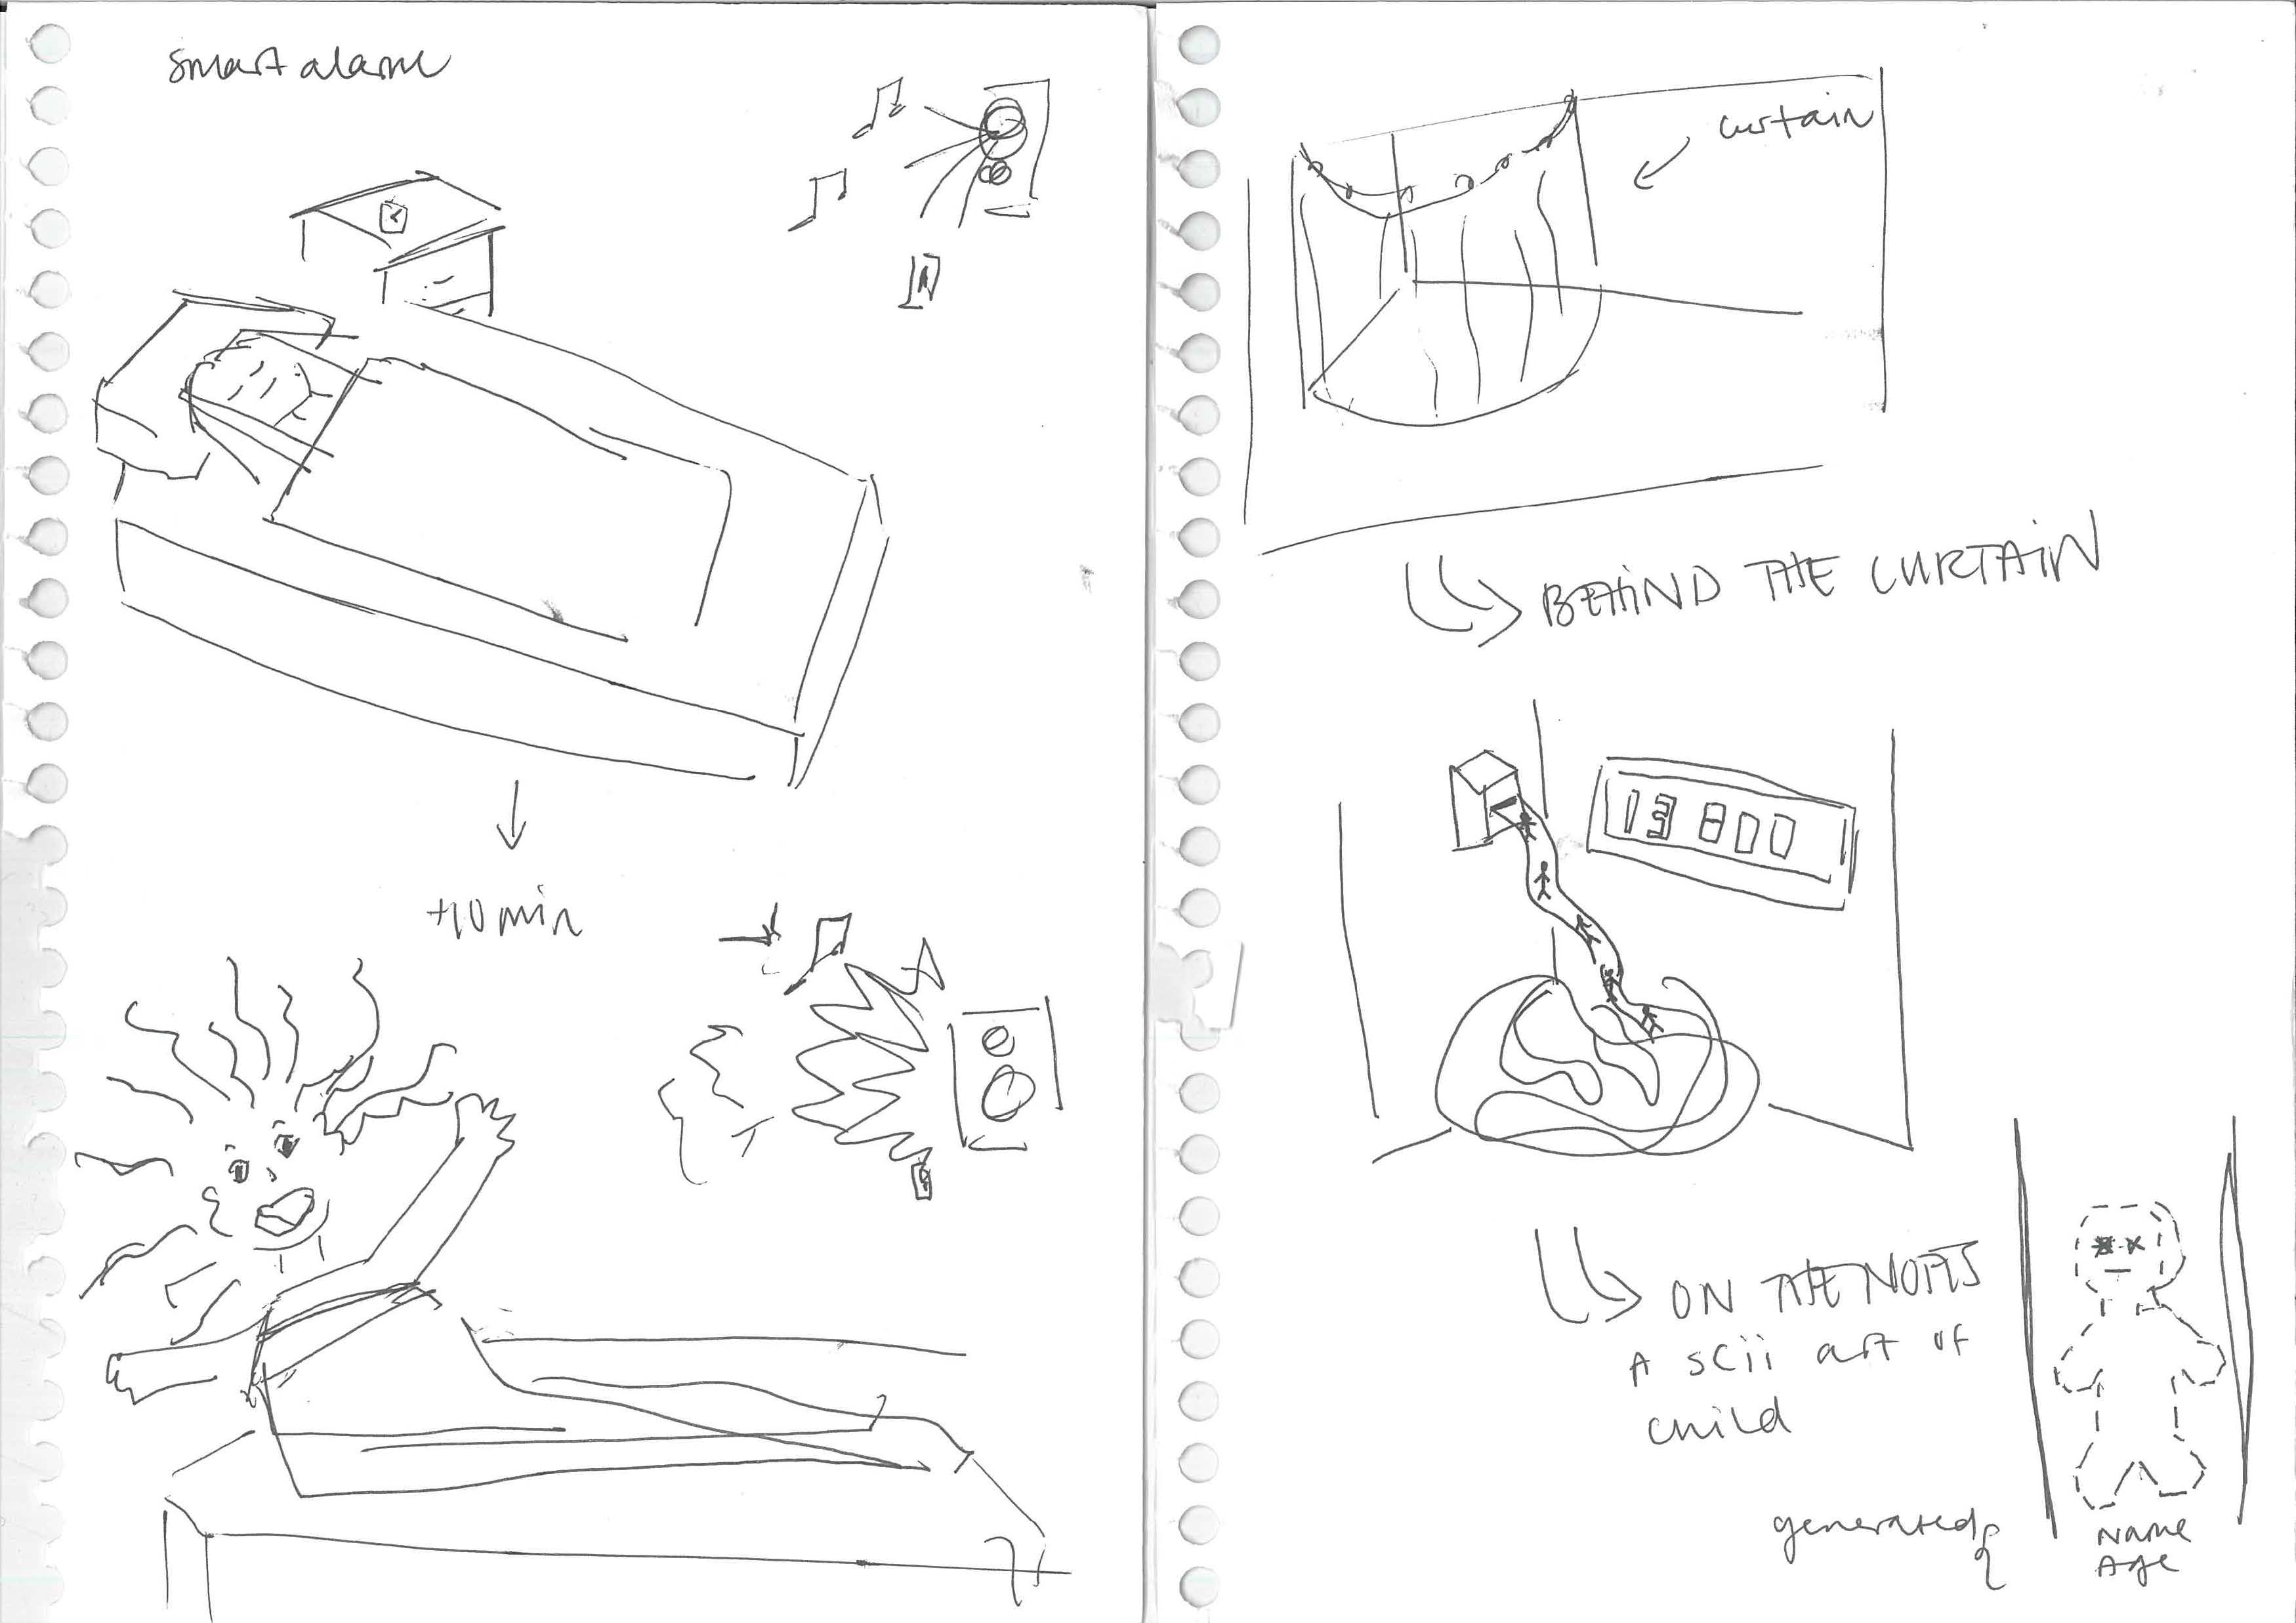 smart alarm
+10 min
curtain
BEHIND THE CURTAIN
13800
ON THE NOTES
A scii art of
child
generated
Name
Age